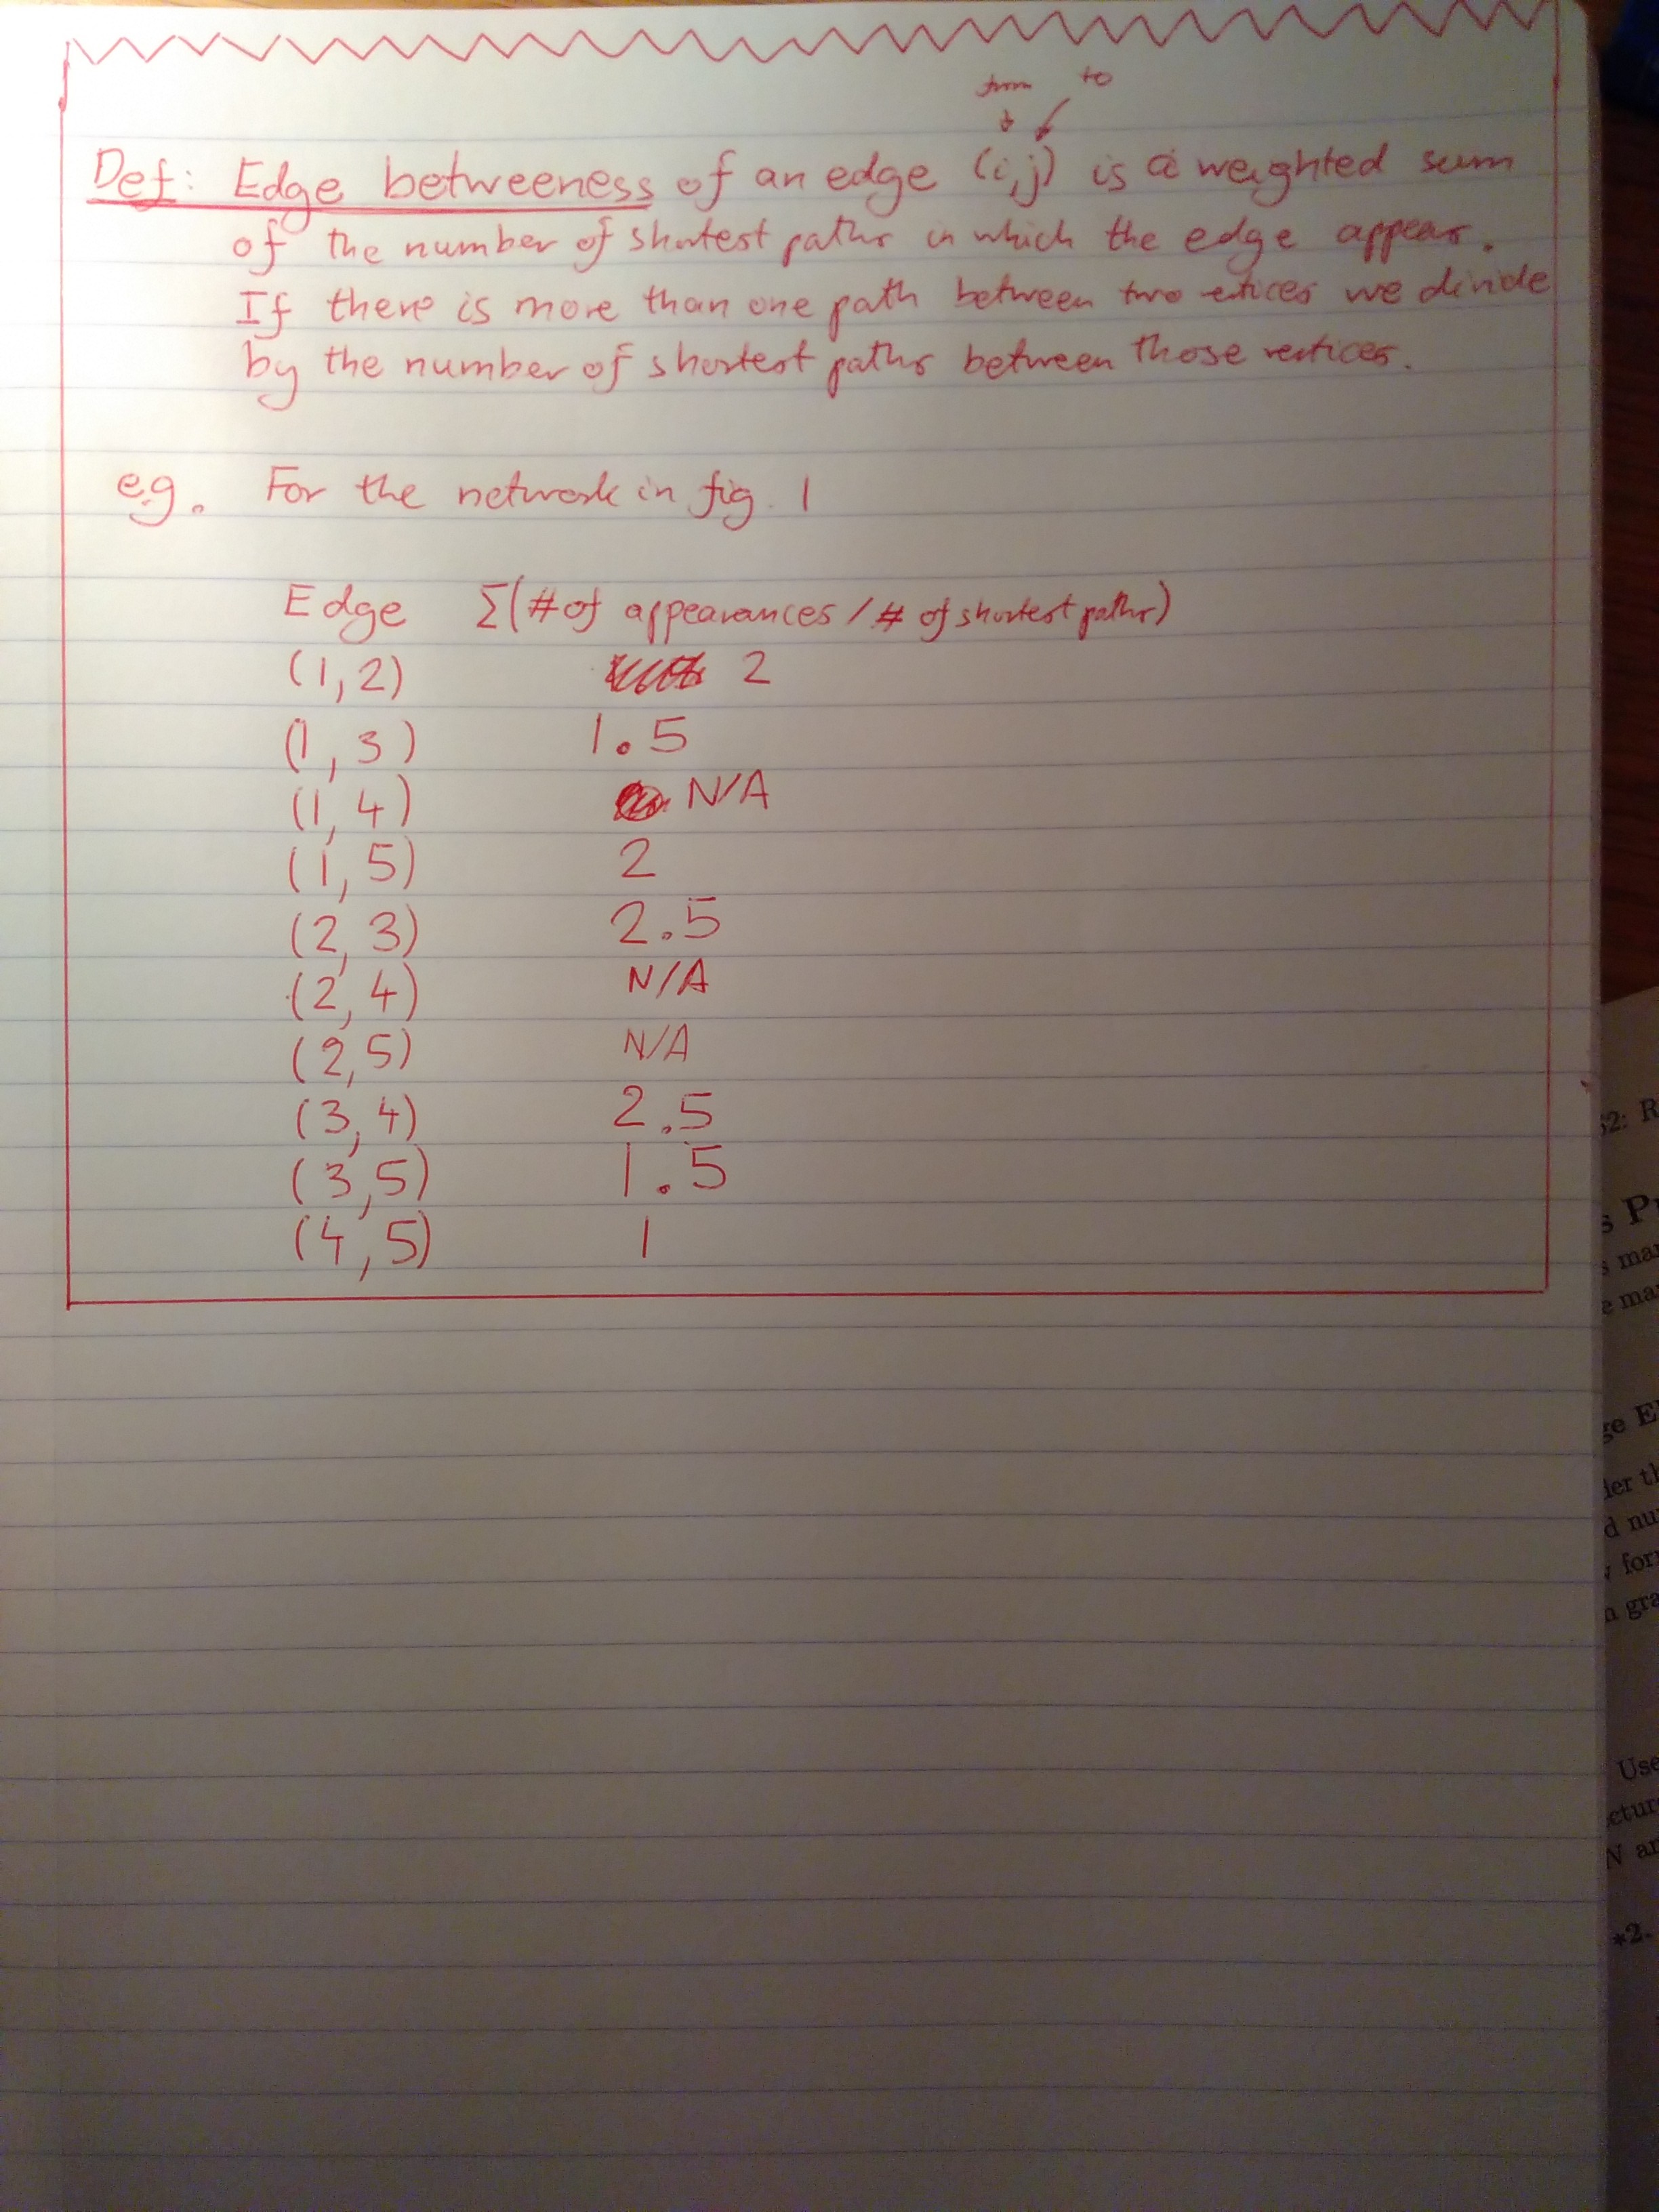 from to
Def: Edge betweeness of an edge (i,j) is a weighted sum
of the number of shortest paths in which the edge appears.
If there is more than one path between two vetices we divide
by the number of shortest paths between those vertices.
e.g. For the network in fig. 1
Edge Σ(# of appearances / # of shortest paths)
(1,2) 2
(1,3) 1.5
(1,4) N/A
(1,5) 2
(2,3) 2.5
(2,4) N/A
(2,5) N/A
(3,4) 2.5
(3,5) 1.5
(4,5) 1
2: R
s Pr
s mar
e mar
ge E
der th
d nu
for
n gra
Use
ctur
N ar
*2.